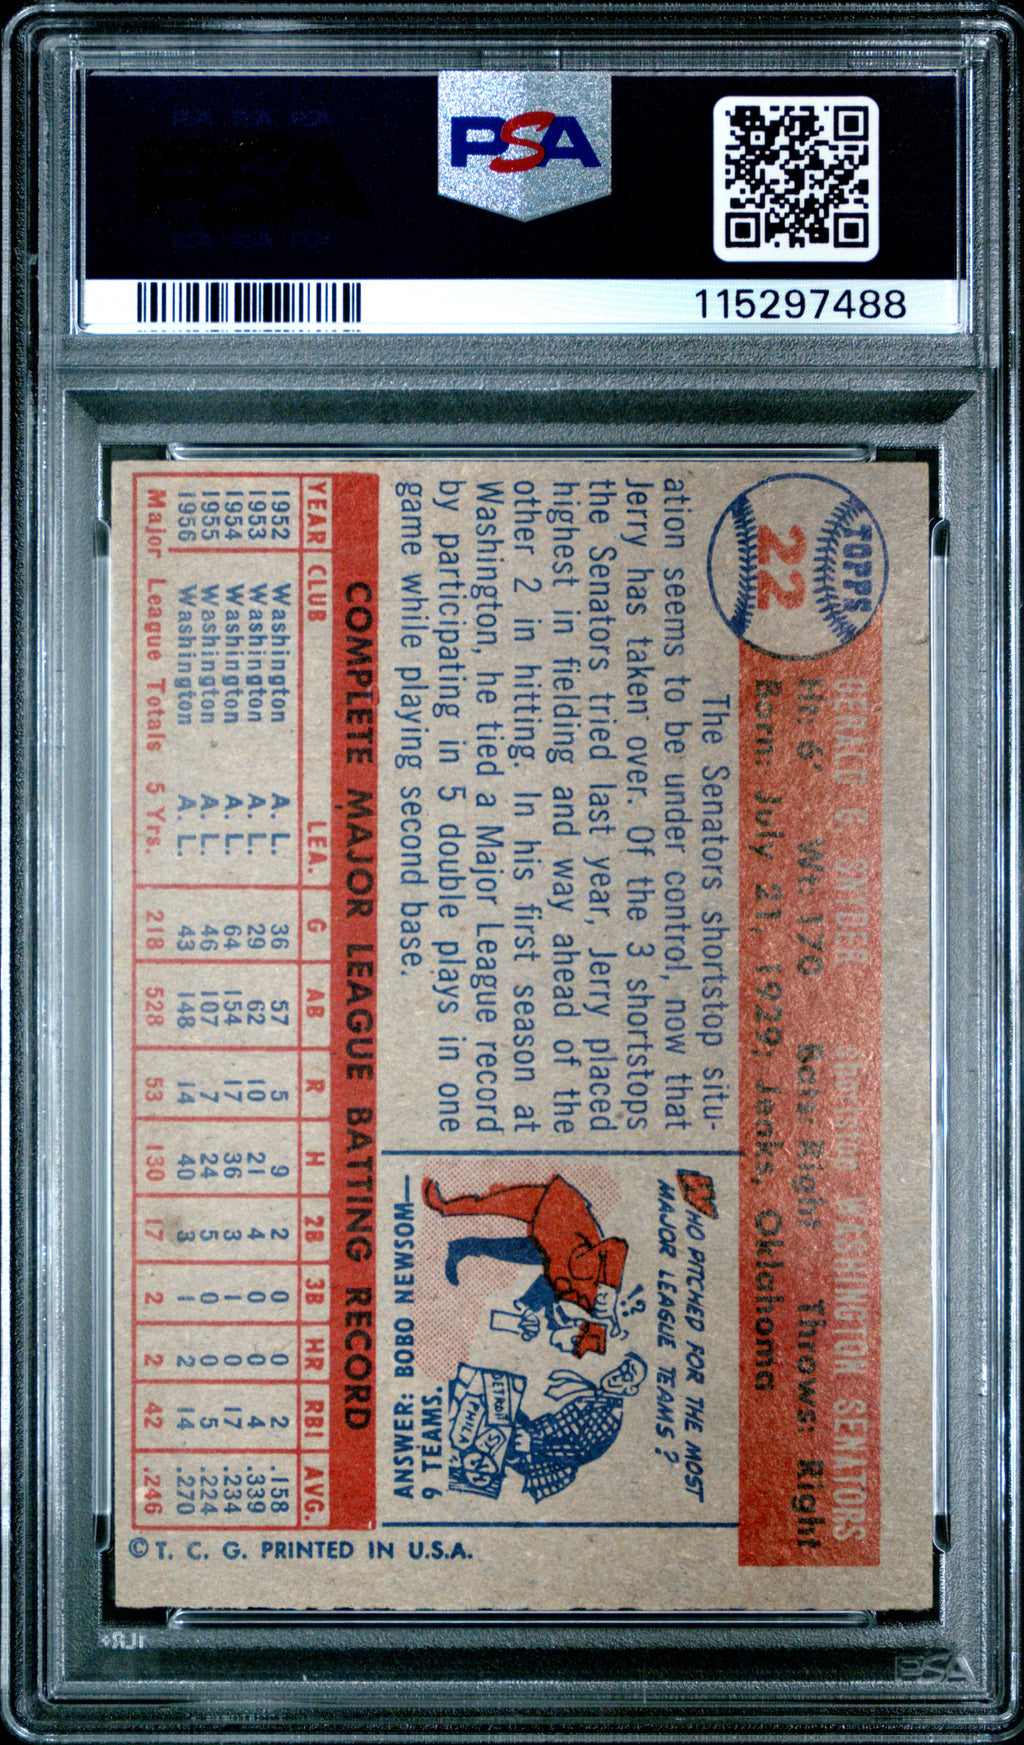 PSA
115297488
TOPPS
22
GERALD G. SNYDER shortstop WASHINGTON SENATORS
Ht: 6' Wt: 170 Bats: Right Throws: Right
Born: July 21, 1929; Jenks, Oklahoma
The Senators shortstop situ-
ation seems to be under control, now that
Jerry has taken over. Of the 3 shortstops
the Senators tried last year, Jerry placed
highest in fielding and way ahead of the
other 2 in hitting. In his first season at
Washington, he tied a Major League record
by participating in 5 double plays in one
game while playing second base.
WHO PITCHED FOR THE MOST
MAJOR LEAGUE TEAMS?
!?
DETROIT
PHILA
ST.
NY
ANSWER: BOBO NEWSOM—
9 TEAMS.
COMPLETE MAJOR LEAGUE BATTING RECORD
YEAR CLUB LEA. G AB R H 2B 3B HR RBI AVG.
1952 Washington A. L. 36 57 5 9 2 0 0 2 .158
1953 Washington A. L. 29 62 10 21 4 0 0 4 .339
1954 Washington A. L. 64 154 17 36 3 1 0 17 .234
1955 Washington A. L. 46 107 7 24 5 0 0 5 .224
1956 Washington A. L. 43 148 14 40 3 1 2 14 .270
Major League Totals 5 Yrs. 218 528 53 130 17 2 2 42 .246
© T. C. G. PRINTED IN U.S.A.
PSA